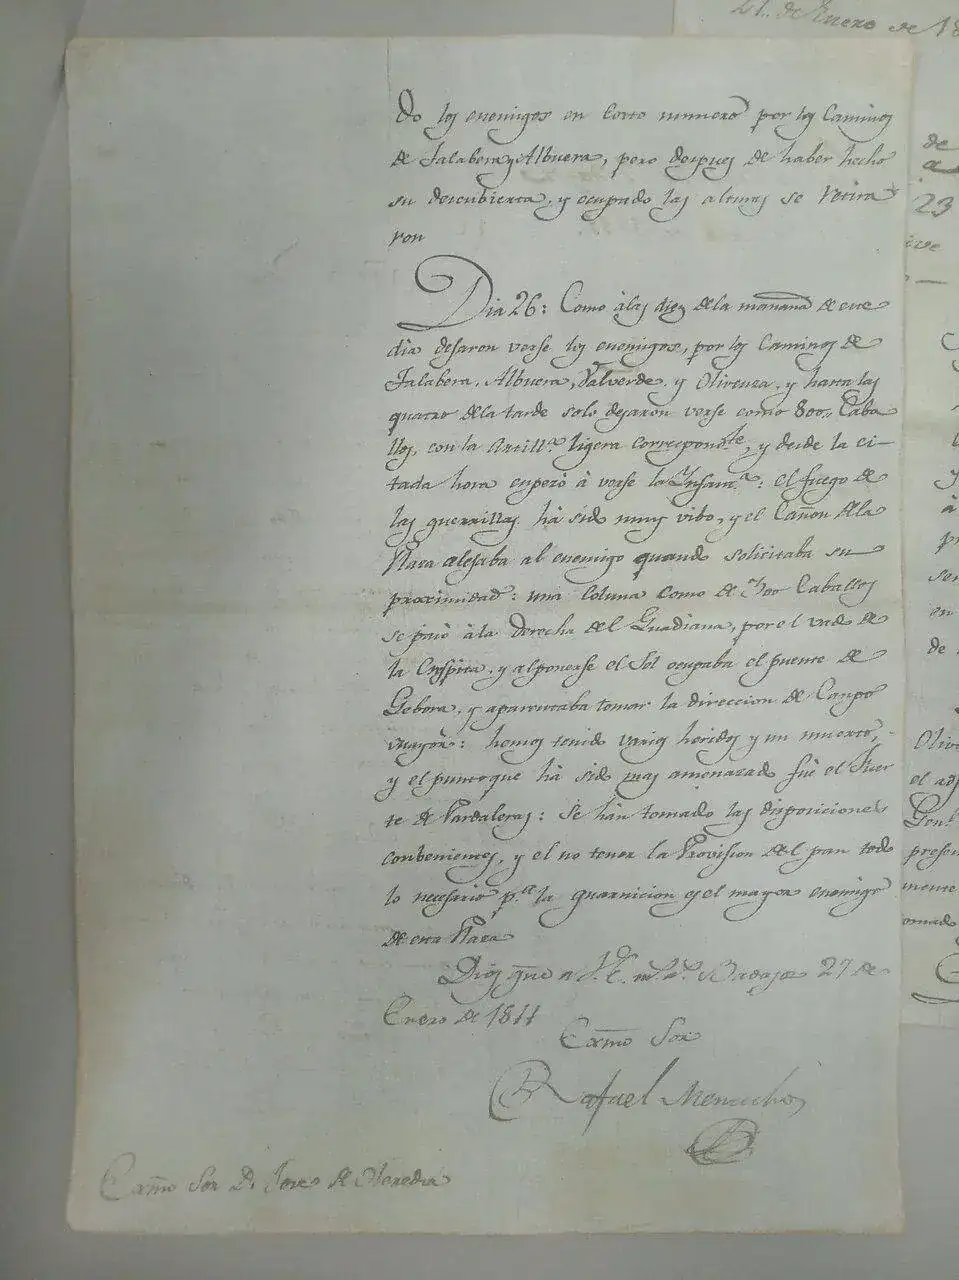 21. de Enero de 18
do los enemigos en corto numero por los Caminos
de Talabera y Albuera, pero despues de haber hecho
su descubierta, y ocupado las alturas se retira
ron
Dia 26: Como á las diez de la mañana de este
dia dejaron verse los enemigos, por los Caminos de
Talabera, Albuera, Valverde, y Olivenza, y hasta las
quatro de la tarde solo dejaron verse como 800,, Caba
llos, con la Artill.ª ligera correspond.te, y desde la ci-
tada hora empezó á verse la Infant.ª: el fuego de
las guerrillas há sido muy vibo, y el Cañon de la
Plaza alejaba al enemigo quando solicitaba su
proximidad: una coluna como de 300 Caballos
se pasó á la derecha del Guadiana, por el vado de
la y al ponerse el Sol ocupaba el puente de
Gebora, y aparentaba tomar la direccion de Campo
mayor: hemos tenido varios heridos y un muerto,
y el punto que há sido mas amenazado fué el Fuer
te de Pardaleras: Se hán tomado las disposiciones
conbenientes, y el no tener la Provision del pan todo
lo necesario p.ª la guarnicion es el mayor enemigo
de esta Plaza
Dios gue a V.E. m.s a.s Badajoz 27 de
Enero de 1811
Exmo Sor
Rafael Menacho
Exmo Sor D. José de Heredia
de
a
23
y
á
en
de
Oliv
el adj
Gen.l
presen
mente
omado